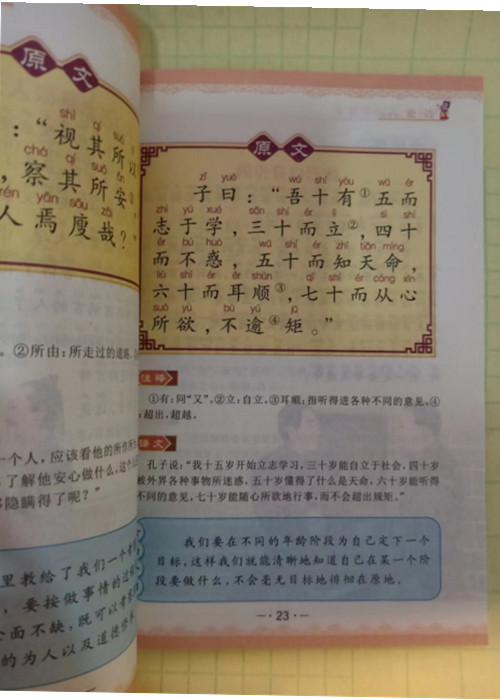 原文
：“视其所以
，察其所安。
人焉廋哉？”
。②所由：所走过的道路。
一个人，应该看他的所作所
了解他安心做什么，这个
隐瞒得了呢？”
里教给了我们一个考
，要按做事情的过
面不缺，既可以考
的为人以及道德修养
原文
zǐ yuē wú shí yòu wǔ ér
子曰：“吾十有①五而
zhì yú xué sān shí ér lì sì shí
志于学，三十而立②，四十
ér bù huò wǔ shí ér zhī tiān mìng
而不惑，五十而知天命，
liù shí ér ěr shùn qī shí ér cóng xīn
六十而耳顺③，七十而从心
suǒ yù bù yú jǔ
所欲，不逾④矩。”
注释
①有：同“又”。②立：自立。③耳顺：指听得进各种不同的意见。④
：超出，超越。
译文
孔子说：“我十五岁开始立志学习，三十岁能自立于社会，四十岁
被外界各种事物所迷惑，五十岁懂得了什么是天命，六十岁能听得
不同的意见，七十岁能随心所欲地行事，而不会超出规矩。”
我们要在不同的年龄阶段为自己定下一个
目标，这样我们就能清晰地知道自己在某一个阶
段要做什么，不会毫无目标地徘徊在原地。
23